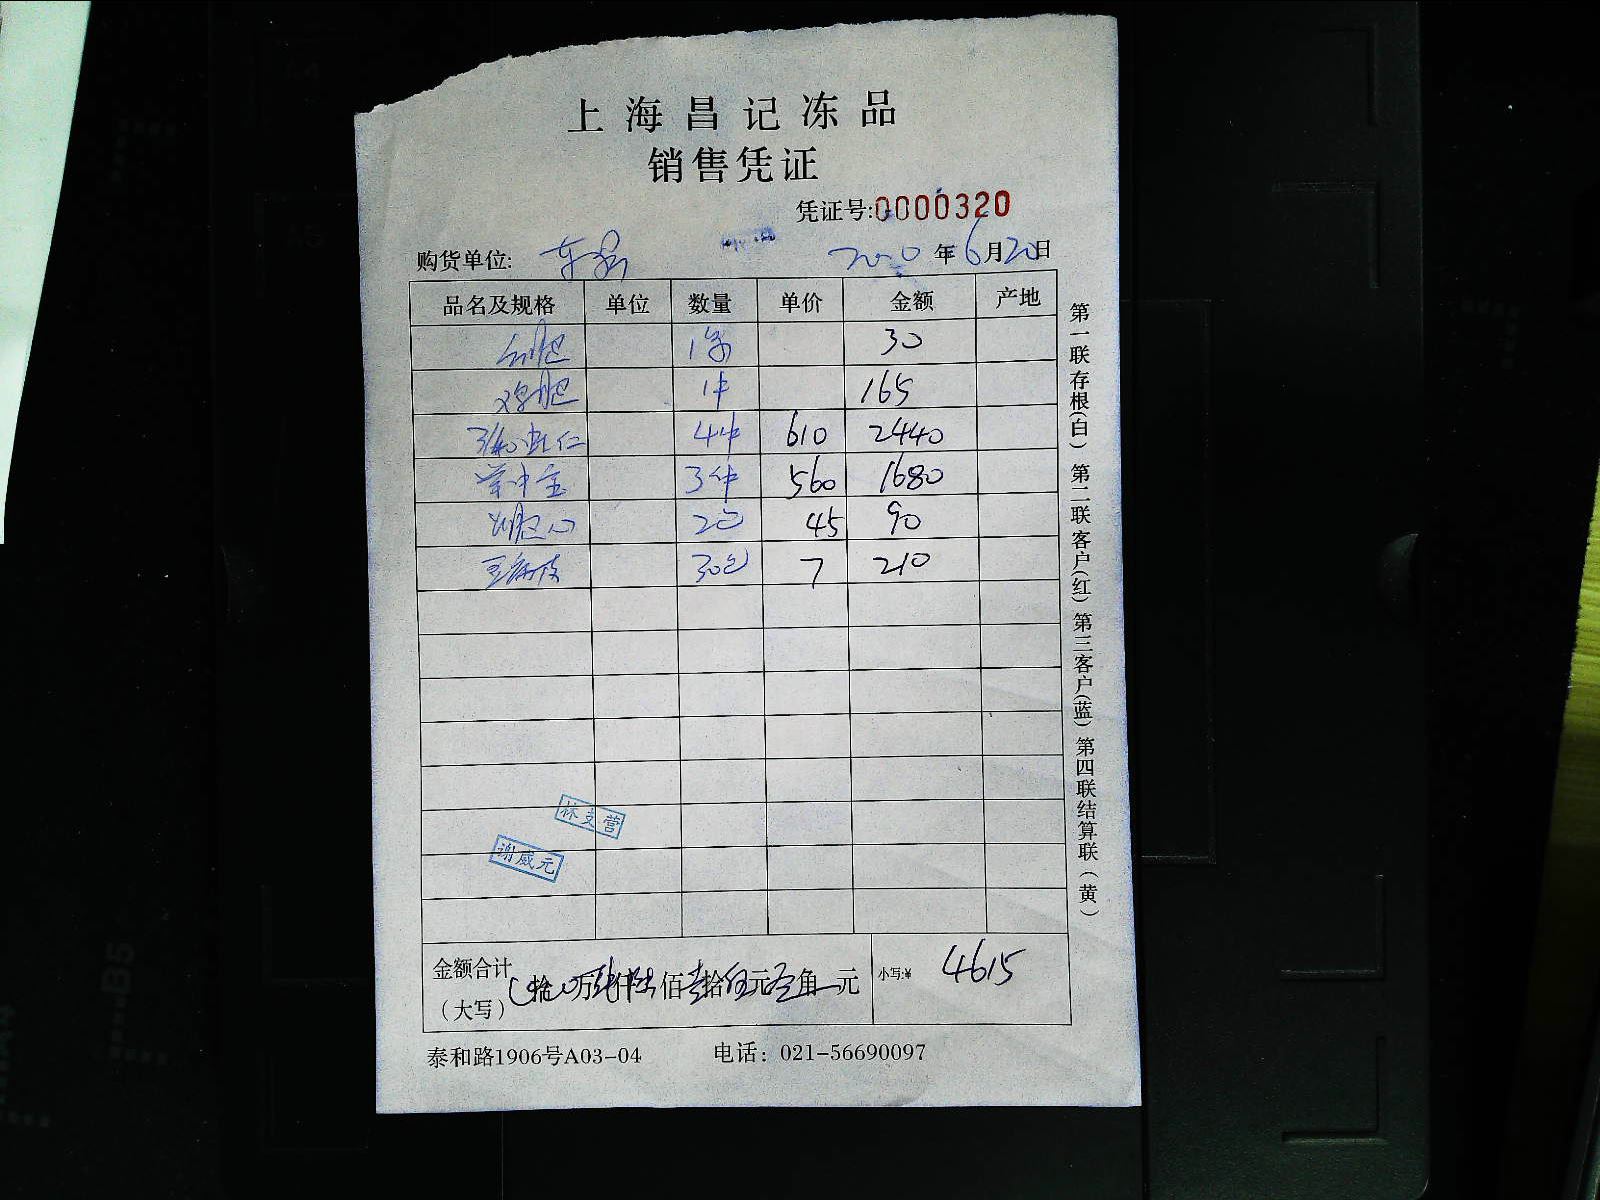 上海昌记冻品
销售凭证
凭证号:0000320
购货单位: 2020年6月20日
品名及规格 单位 数量 单价 金额 产地
1条 30
鸡肥 1件 165
31/40虾仁 4件 610 2440
3件 560 1680
2包 45 90
豆腐皮 30包 7 210
林支营
谢威元
金额合计 拾万肆仟陆佰壹拾伍元 角 元 小写:¥ 4615
(大写)
泰和路1906号A03-04 电话: 021-56690097
第一联存根(白) 第二联客户(红) 第三客户(蓝) 第四联结算联(黄)
B5